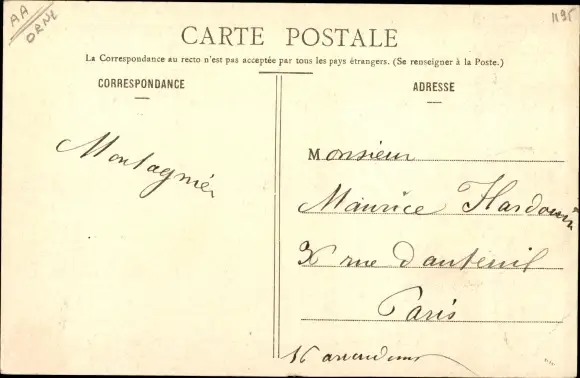 AA
ORNE
1195
CARTE POSTALE
La Correspondance au recto n'est pas acceptée par tous les pays étrangers. (Se renseigner à la Poste.)
CORRESPONDANCE
Montagnier
ADRESSE
Monsieur
Maurice Hardouin
rue d'auteuil
Paris
16